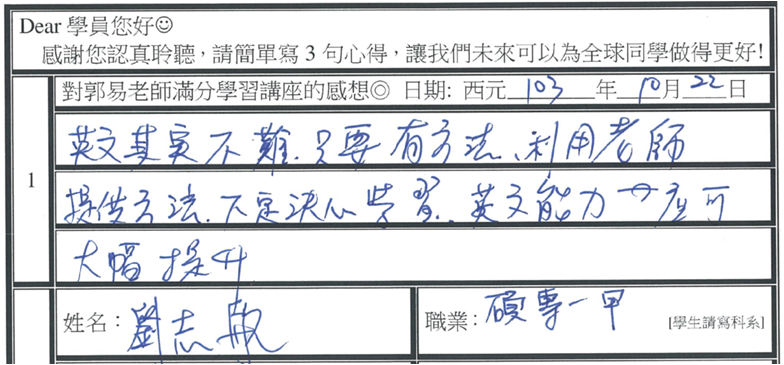 Dear 學員您好☺
感謝您認真聆聽，請簡單寫 3 句心得，讓我們未來可以為全球同學做得更好!
對郭易老師滿分學習講座的感想◎ 日期: 西元 103 年 10 月 22 日
英文其實不難，只要有方法、利用老師
1
提供方法、下定決心學習、英文能力 應可
大幅提升
姓名：劉志
職業：碩專一甲 [學生請寫科系]